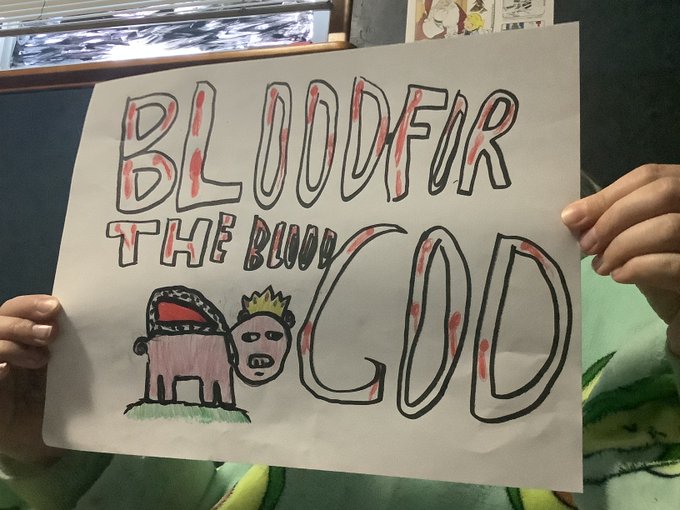 BLOOD FOR
THE BLOOD GOD